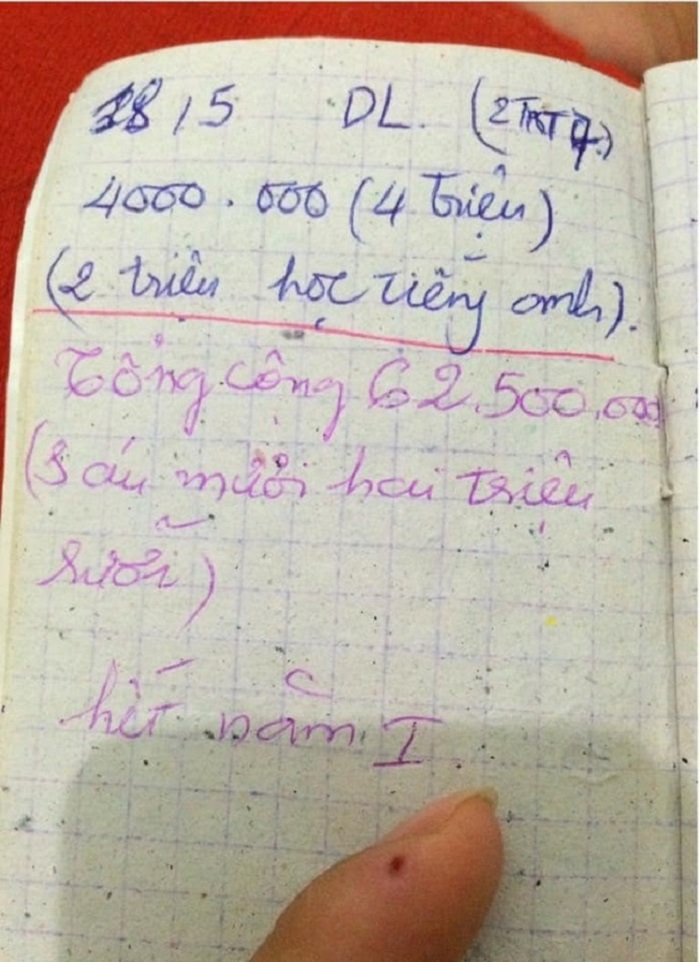 18/5 DL.
4000.000 (4 triệu)
(2 triệu học tiếng anh).
Tổng cộng 62.500.000
(Sáu mươi hai triệu
rưỡi)
hết năm I.